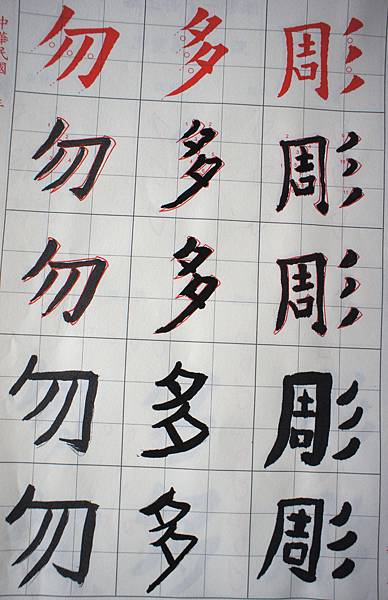 彫彫彫彫彫
多多多多多
勿勿勿勿勿
中華民國